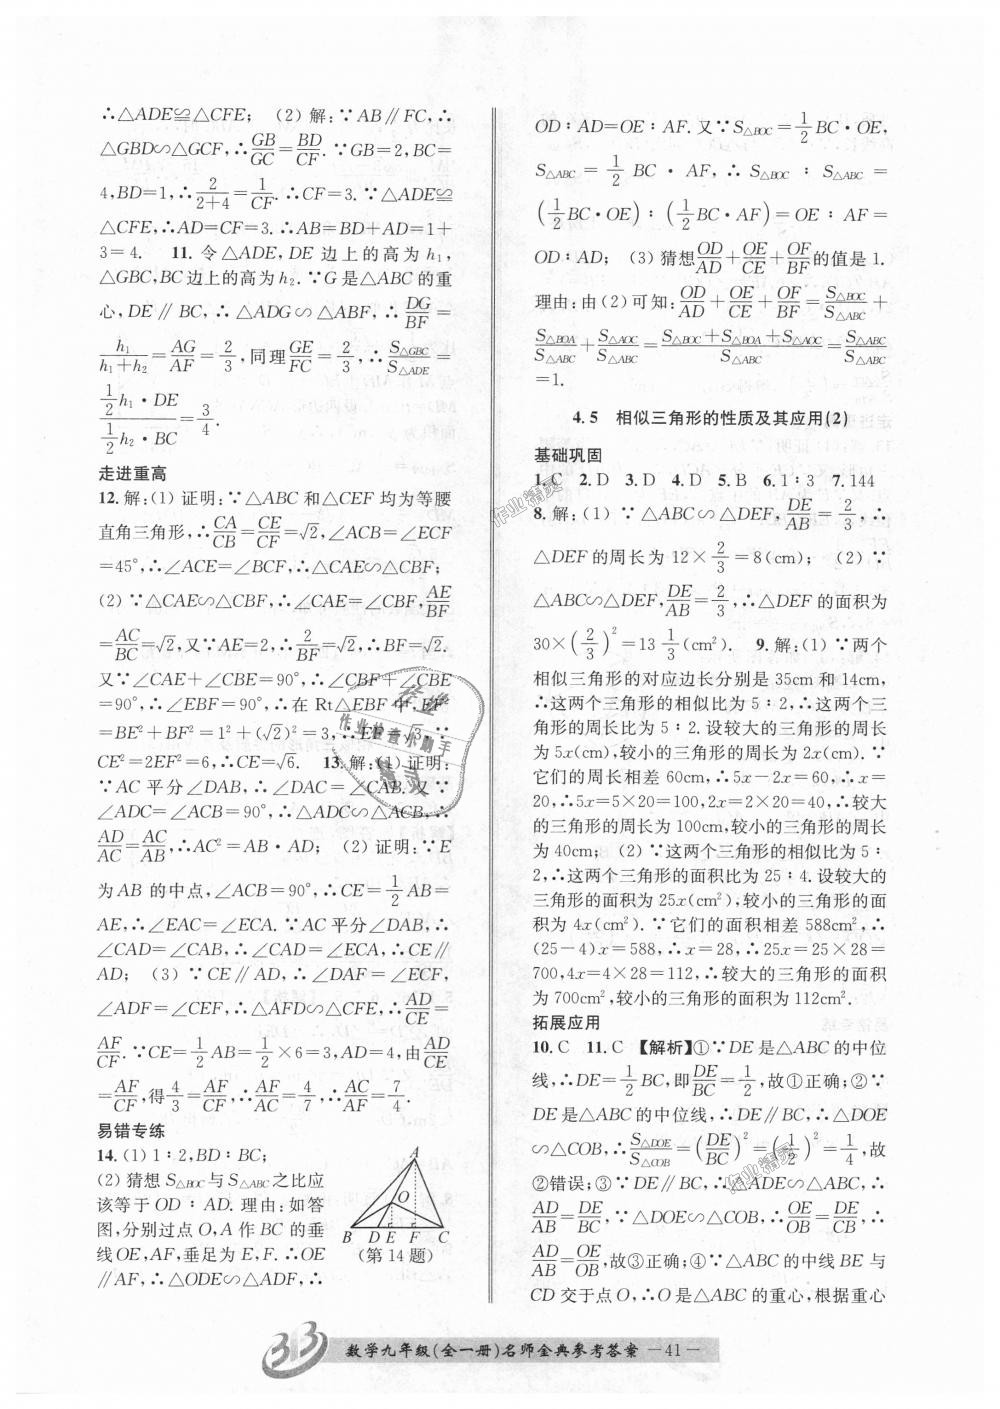 ∴△ADE≌△CFE; (2) 解:∵AB∥FC,∴
△GBD∽△GCF,∴GB/GC=BD/CF.∵GB=2,BC=
4,BD=1,∴2/(2+4)=1/CF.∴CF=3.∵△ADE≌
△CFE,∴AD=CF=3.∴AB=BD+AD=1+
3=4. 11. 令△ADE,DE边上的高为h₁,
△GBC,BC边上的高为h₂.∵G是△ABC的重
心,DE∥BC,∴△ADG∽△ABF,∴DG/BF=
h₁/(h₁+h₂)=AG/AF=2/3,同理GE/FC=2/3,∴S△GBC/S△ADE=
(1/2 h₁·DE)/(1/2 h₂·BC)=3/4.
走进重高
12. 解:(1) 证明:∵△ABC和△CEF均为等腰
直角三角形,∴CA/CB=CE/CF=√2,∠ACB=∠ECF
=45°,∴∠ACE=∠BCF,∴△CAE∽△CBF;
(2) ∵△CAE∽△CBF,∴∠CAE=∠CBF,AE/BF
=AC/BC=√2,又∵AE=2,∴2/BF=√2,∴BF=√2.
又∵∠CAE+∠CBE=90°,∴∠CBF+∠CBE
=90°,∴∠EBF=90°,∴在Rt△EBF中,EF²
=BE²+BF²=1²+(√2)²=3,∴EF=√3.∵
CE²=2EF²=6,∴CE=√6. 13. 解:(1)证明:
∵AC平分∠DAB,∴∠DAC=∠CAB.又∵
∠ADC=∠ACB=90°,∴△ADC∽△ACB,∴
AD/AC=AC/AB,∴AC²=AB·AD; (2) 证明:∵E
为AB的中点,∠ACB=90°,∴CE=1/2AB=
AE,∴∠EAC=∠ECA.∵AC平分∠DAB,∴
∠CAD=∠CAB,∴∠CAD=∠ECA,∴CE∥
AD; (3) ∵CE∥AD,∴∠DAF=∠ECF,
∠ADF=∠CEF,∴△AFD∽△CFE,∴AD/CE=
AF/CF.∵CE=1/2AB=1/2×6=3,AD=4,由AD/CE
=AF/CF,得4/3=AF/CF,∴AF/AC=4/7,∴AC/AF=7/4.
易错专练
14. (1) 1∶2,BD∶BC;
(2) 猜想S△BOC与S△ABC之比应
该等于OD∶AD.理由:如答
图,分别过点O,A作BC的垂
线OE,AF,垂足为E,F.∴OE
∥AF,∴△ODE∽△ADF,∴
A
O
B D E F C
(第14题)
OD∶AD=OE∶AF.又∵S△BOC=1/2BC·OE,
S△ABC=1/2 BC·AF,∴S△BOC∶S△ABC=
(1/2BC·OE)∶(1/2BC·AF)=OE∶AF=
OD∶AD; (3) 猜想OD/AD+OE/CE+OF/BF的值是1.
理由:由(2)可知:OD/AD+OE/CE+OF/BF=S△BOC/S△ABC+
S△BOA/S△ABC+S△AOC/S△ABC=(S△BOC+S△BOA+S△AOC)/S△ABC=S△ABC/S△ABC
=1.
4.5 相似三角形的性质及其应用(2)
基础巩固
1. C 2. D 3. D 4. D 5. B 6. 1∶3 7. 144
8. 解:(1) ∵△ABC∽△DEF,DE/AB=2/3,∴
△DEF的周长为12×2/3=8(cm); (2) ∵
△ABC∽△DEF,DE/AB=2/3,∴△DEF的面积为
30×(2/3)²=13 1/3(cm²). 9. 解:(1) ∵两个
相似三角形的对应边长分别是35cm和14cm,
∴这两个三角形的相似比为5∶2,∴这两个三
角形的周长比为5∶2.设较大的三角形的周长
为5x(cm),较小的三角形的周长为2x(cm).∵
它们的周长相差60cm,∴5x-2x=60,∴x=
20,∴5x=5×20=100,2x=2×20=40,∴较大
的三角形的周长为100cm,较小的三角形的周长
为40cm; (2) ∵这两个三角形的相似比为5∶
2,∴这两个三角形的面积比为25∶4.设较大的
三角形的面积为25x(cm²),较小的三角形的面
积为4x(cm²).∵它们的面积相差588cm²,∴
(25-4)x=588,∴x=28,∴25x=25×28=
700,4x=4×28=112,∴较大的三角形的面积
为700cm²,较小的三角形的面积为112cm².
拓展应用
10. C 11. C 【解析】①∵DE是△ABC的中位
线,∴DE=1/2BC,即DE/BC=1/2,故①正确;②∵
DE是△ABC的中位线,∴DE∥BC,∴△DOE
∽△COB,∴S△DOE/S△COB=(DE/BC)²=(1/2)²=1/4,故
②错误;③∵DE∥BC,∴△ADE∽△ABC,∴
AD/AB=DE/BC,∵△DOE∽△COB,∴OE/OB=DE/CB,∴
AD/AB=OE/OB,故③正确;④∵△ABC的中线BE与
CD交于点O,∴O是△ABC的重心,根据重心
数学九年级(全一册)名师金典参考答案 —41—
作业精灵
作业
作业检查小助手
精灵
作业精灵